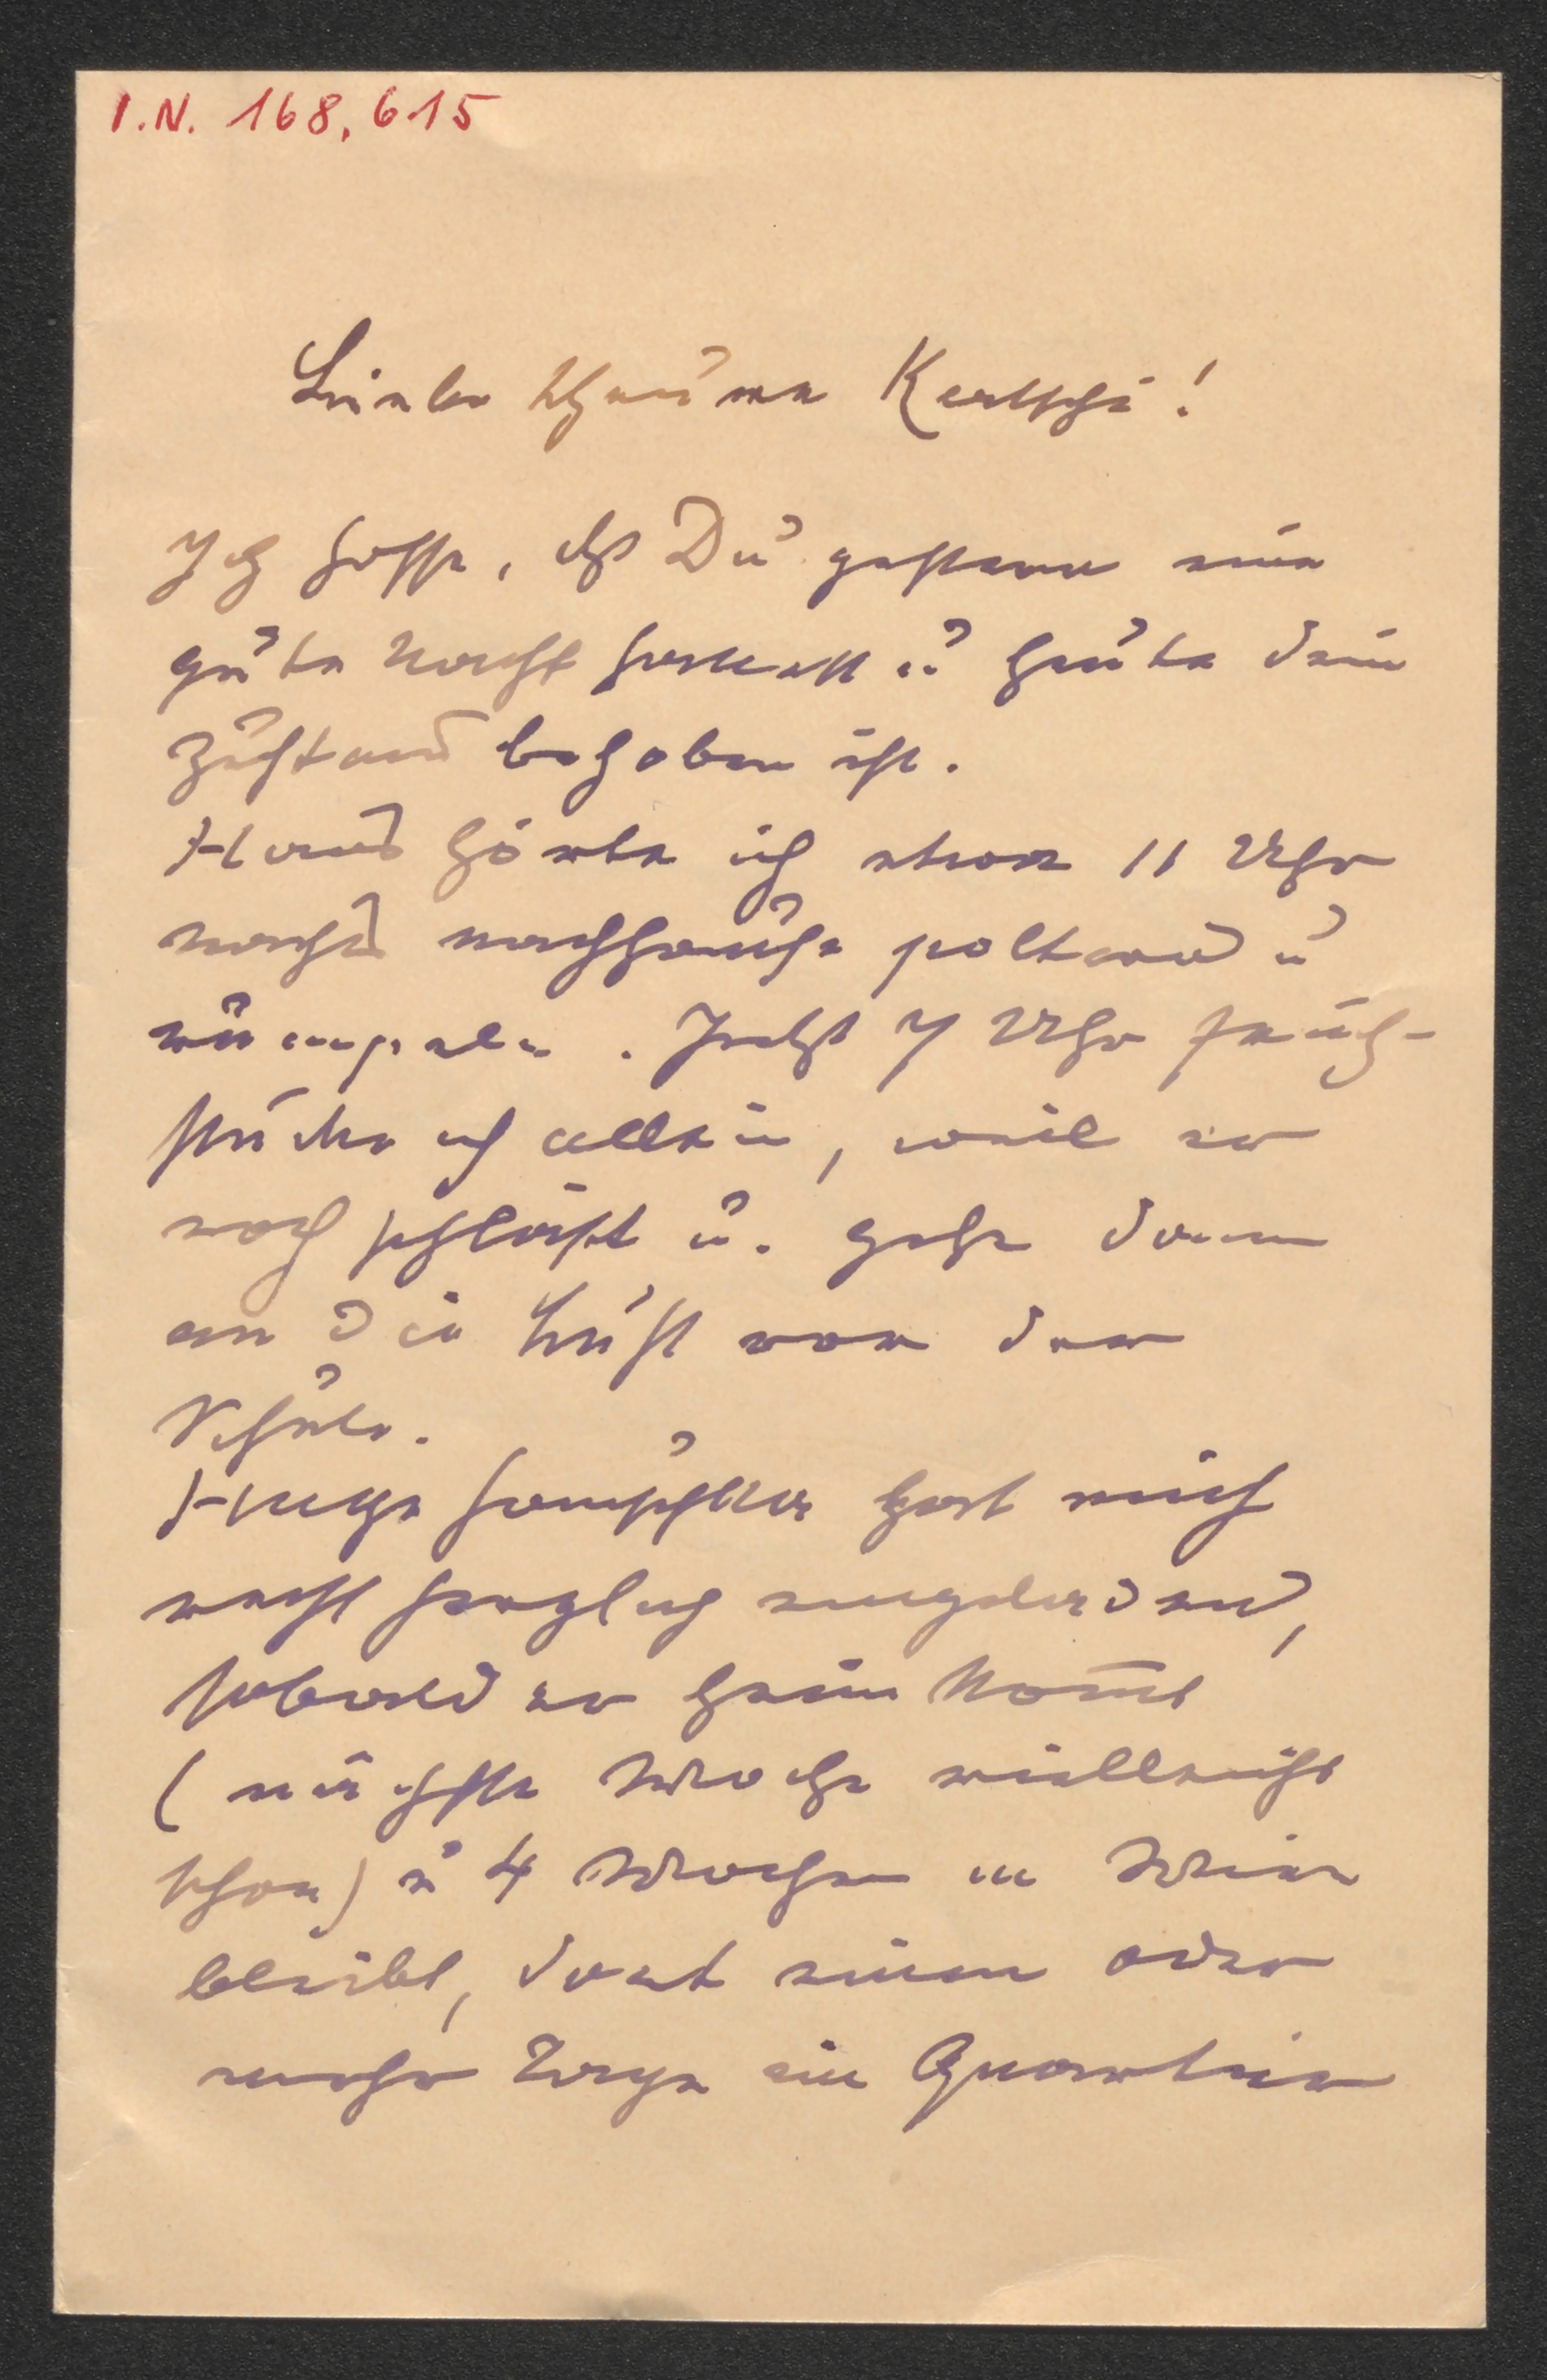 I.N. 168.615
Liebe theure Kathi!
Ich hoffe, dß Du gestern eine
gute Nacht hattest u heute dein
Zustand behoben ist.
Hans hörte ich etwa 11 Uhr
nachts nachhause poltern u
rumpeln. Jetzt 7 Uhr früh-
stücke ich allein, weil er
noch schläft u. gehe dann
an die Luft vor der
Schule.
Hugo hat mich
recht herzlich eingeladen,
sobald er heim kom̄t
(nächste Woche vielleicht
schon) u 4 Wochen in Wien
bleibt, dort einen oder
mehr Tage ein Quartier